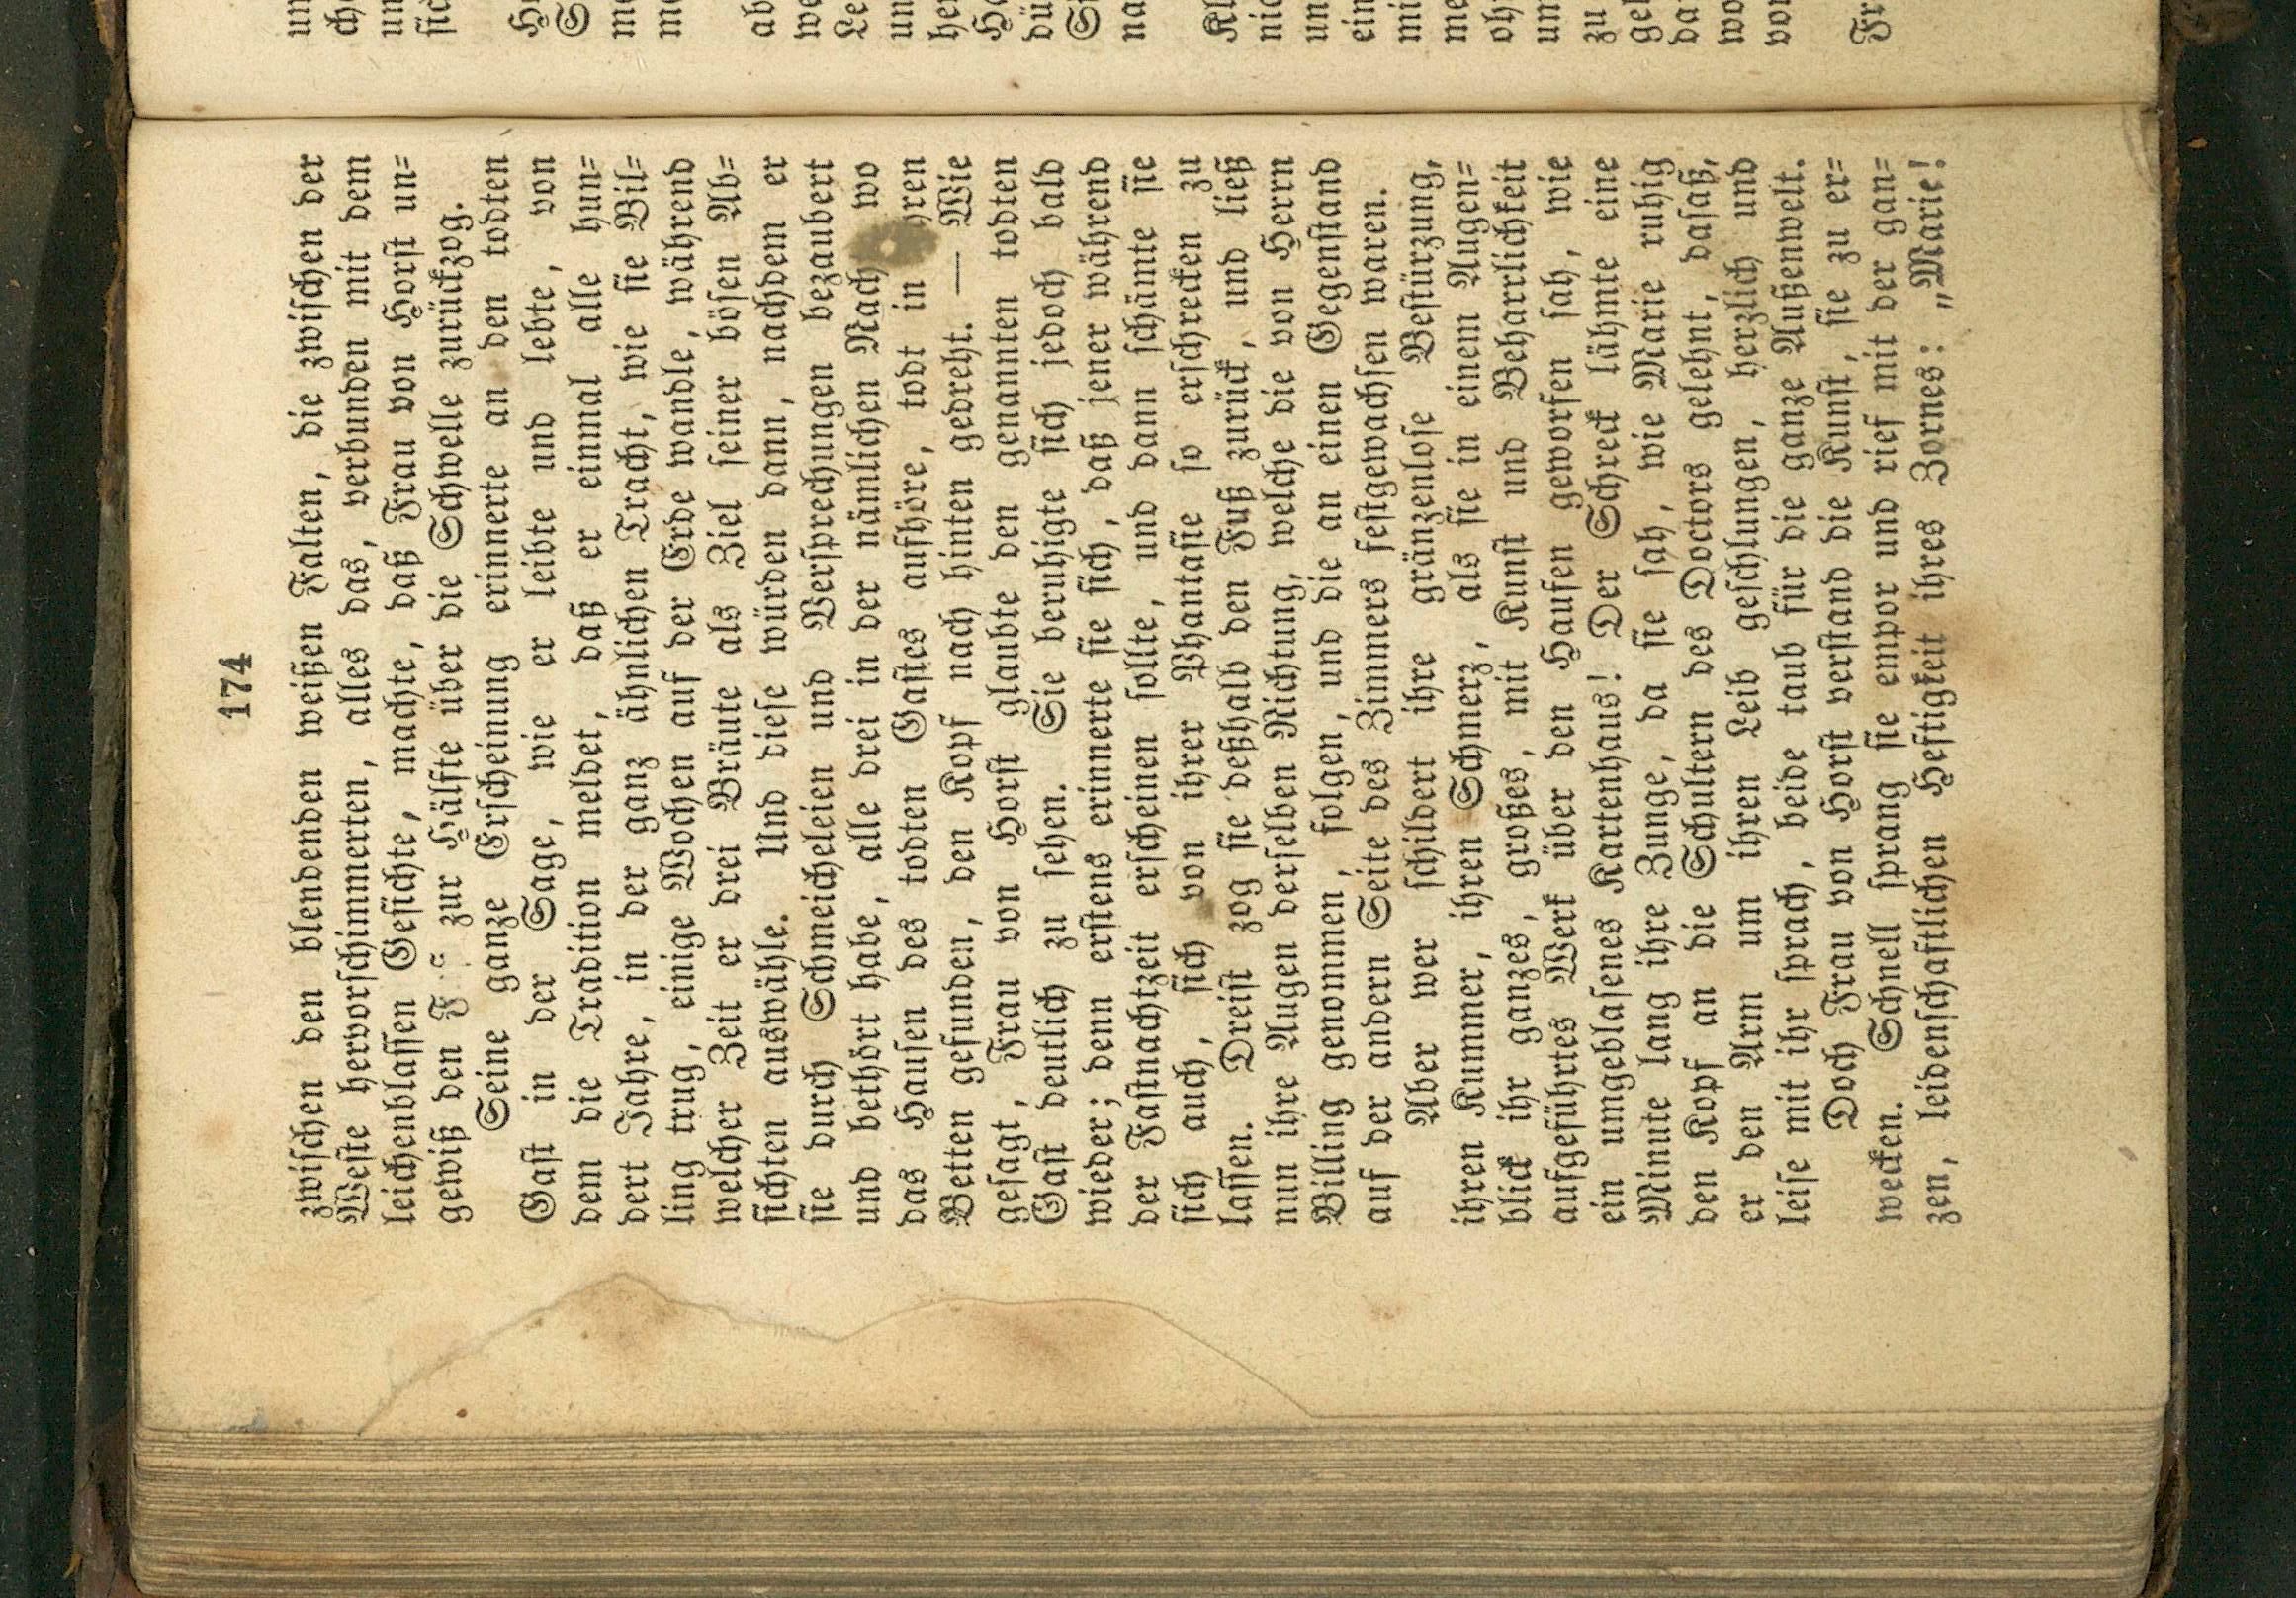 174
zwischen den blendenden weißen Falten, die zwischen der
Weste hervorschimmerten, alles das, verbunden mit dem
leichenblassen Gesichte, machte, daß Frau von Horst un=
gewiß den F zur Hälfte über die Schwelle zurückzog.
Seine ganze Erscheinung erinnerte an den todten
Gast in der Sage, wie er leibte und lebte, von
dem die Tradition meldet, daß er einmal alle hun=
dert Jahre, in der ganz ähnlichen Tracht, wie sie Bil=
ling trug, einige Wochen auf der Erde wandle, während
welcher Zeit er drei Bräute als Ziel seiner bösen Ab=
sichten auswähle. Und diese würden dann, nachdem er
sie durch Schmeicheleien und Versprechungen bezaubert
und bethört habe, alle drei in der nämlichen Nach wo
das Hausen des todten Gastes aufhöre, todt in hren
Betten gefunden, den Kopf nach hinten gedreht. — Wie
gesagt, Frau von Horst glaubte den genannten todten
Gast deutlich zu sehen. Sie beruhigte sich jedoch bald
wieder; denn erstens erinnerte sie sich, daß jener während
der Fastnachtzeit erscheinen sollte, und dann schämte sie
sich auch, sich von ihrer Phantasie so erschrecken zu
lassen. Dreist zog sie deßhalb den Fuß zurück, und ließ
nun ihre Augen derselben Richtung, welche die von Herrn
Billing genommen, folgen, und die an einen Gegenstand
auf der andern Seite des Zimmers festgewachsen waren.
Aber wer schildert ihre gränzenlose Bestürzung,
ihren Kummer, ihren Schmerz, als sie in einem Augen=
blick ihr ganzes, großes, mit Kunst und Beharrlichkeit
aufgeführtes Werk über den Haufen geworfen sah, wie
ein umgeblasenes Kartenhaus! Der Schreck lähmte eine
Minute lang ihre Zunge, da sie sah, wie Marie ruhig
den Kopf an die Schultern des Doctors gelehnt, dasaß,
er den Arm um ihren Leib geschlungen, herzlich und
leise mit ihr sprach, beide taub für die ganze Außenwelt.
Doch Frau von Horst verstand die Kunst, sie zu er=
wecken. Schnell sprang sie empor und rief mit der gan=
zen, leidenschaftlichen Heftigkeit ihres Zornes: „Marie!